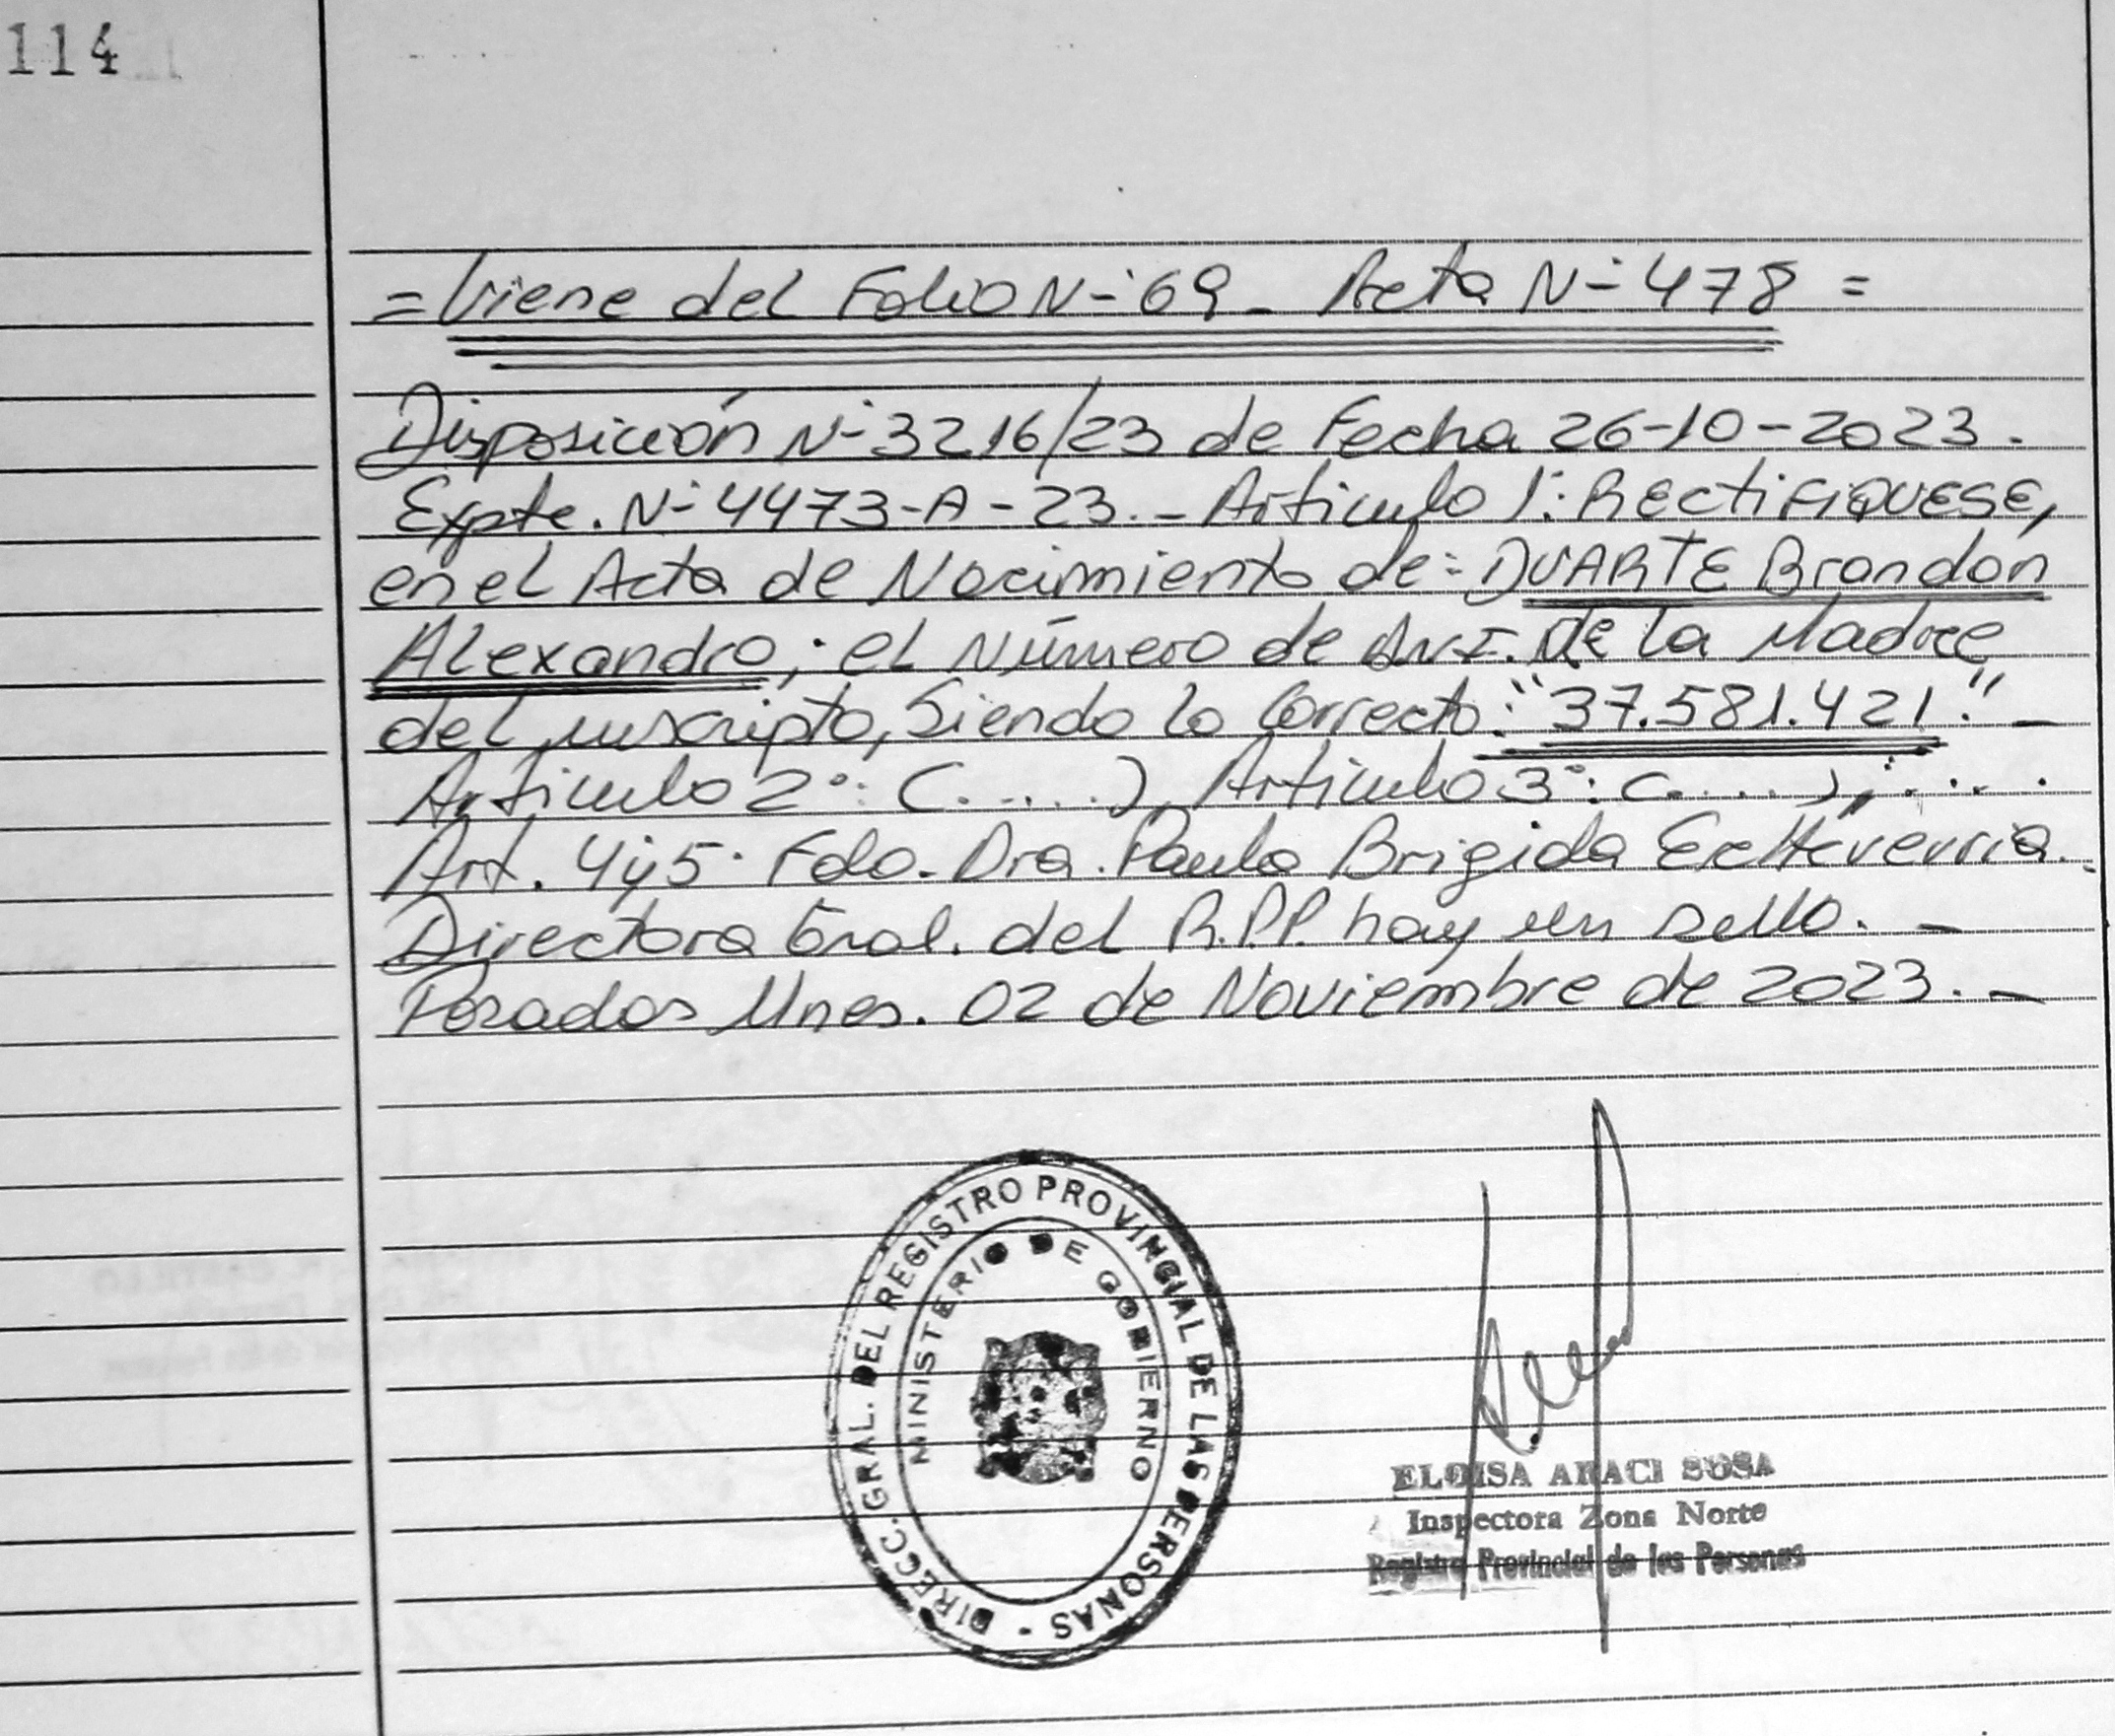 114
= Viene del Folio N-º 69 - Acta N-º 478 =
Disposición N-º 3216/23 de Fecha 26-10-2023.
Expte. N-º 4473-A-23.- Articulo 1º: RECtiFiQUESE,
en el Acta de Nacimiento de: DUARTE Brandon
Alexandro; el Número de D.N.I. de la Madre
del inscripto, Siendo lo Correcto: "37.581.421". -
Articulo 2º: (.....), Articulo 3º: (.....); ....
Art. 4 y 5. Fdo. Dra. Paula Brigida Echeverria.
Directora Gral. del R.P.P. hay un sello. -
Posadas Mnes. 02 de Noviembre de 2023. -
DIRECC. GRAL. DEL REGISTRO PROVINCIAL DE LAS PERSONAS -
MINISTERIO DE GOBIERNO
ELOISA ARACI SOSA
Inspectora Zona Norte
Registro Provincial de las Personas